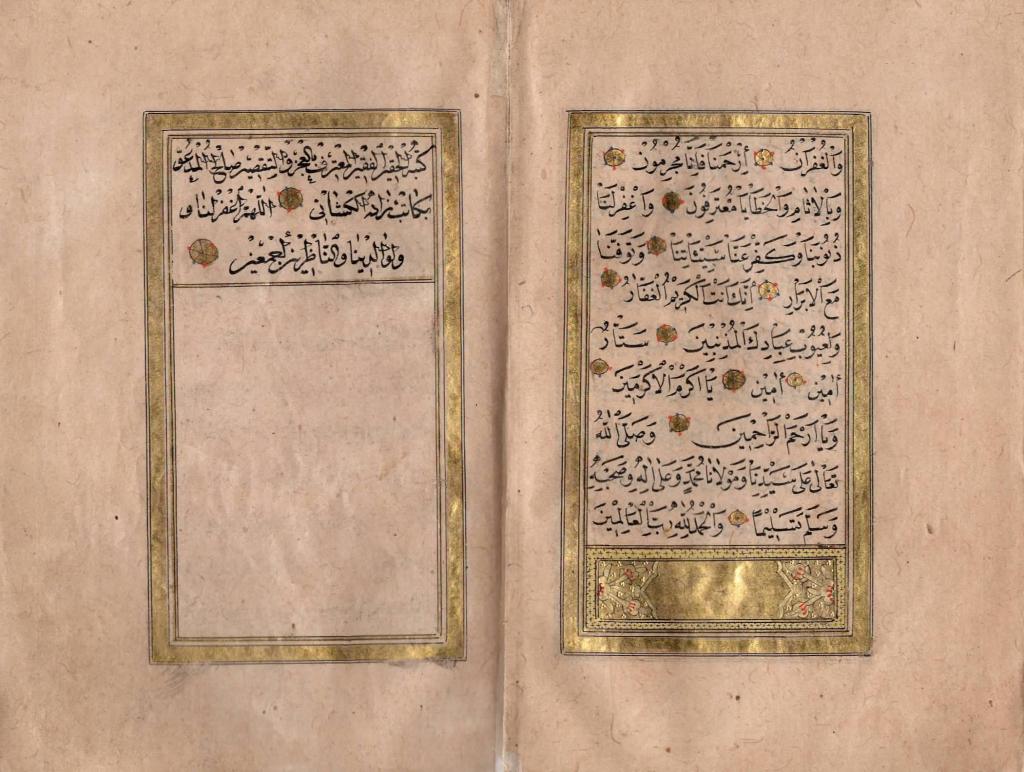 وَالْغُفْرَانُ اِرْحَمْنَا فَاِنَّا مُجْرِمُونَ
وَبِالْاٰثَامِ وَالْخَطَايَا مُعْتَرِفُونَ وَاغْفِرْلَنَا
ذُنُوبَنَا وَكَفِّرْ عَنَّا سَيِّئَاتِنَا وَتَوَفَّنَا
مَعَ الْاَبْرَارِ اِنَّكَ اَنْتَ الْكَرِيمُ الْغَفَّارُ
وَلِعُيُوبِ عِبَادِكَ الْمُذْنِبِينَ سَتَّارُ
اٰمِينَ اٰمِينَ يَا اَكْرَمَ الْاَكْرَمِينَ
وَيَا اَرْحَمَ الرَّاحِمِينَ وَصَلَّى اللّٰهُ
تَعَالٰى عَلٰى سَيِّدِنَا وَمَوْلَانَا مُحَمَّدٍ وَعَلٰى اٰلِهِ وَصَحْبِهِ
وَسَلَّمَ تَسْلِيْمًا وَالْحَمْدُ لِلّٰهِ رَبِّ الْعَالَمِينَ
كتبه الحقير الفقير المعترف بالعجز والتقصير صالح المدعو
بكاتب زاده اللهم اغفر لنا و
ولوالدينا وللناظرين اجمعين